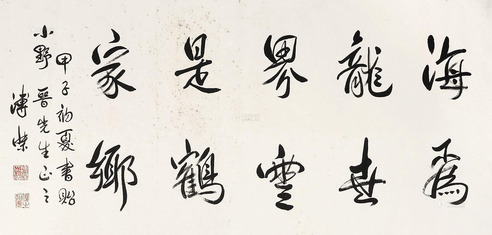 海為
龍世
界雲
是鶴
家鄉
甲子初夏書貽
小野晉先生正之
溥傑